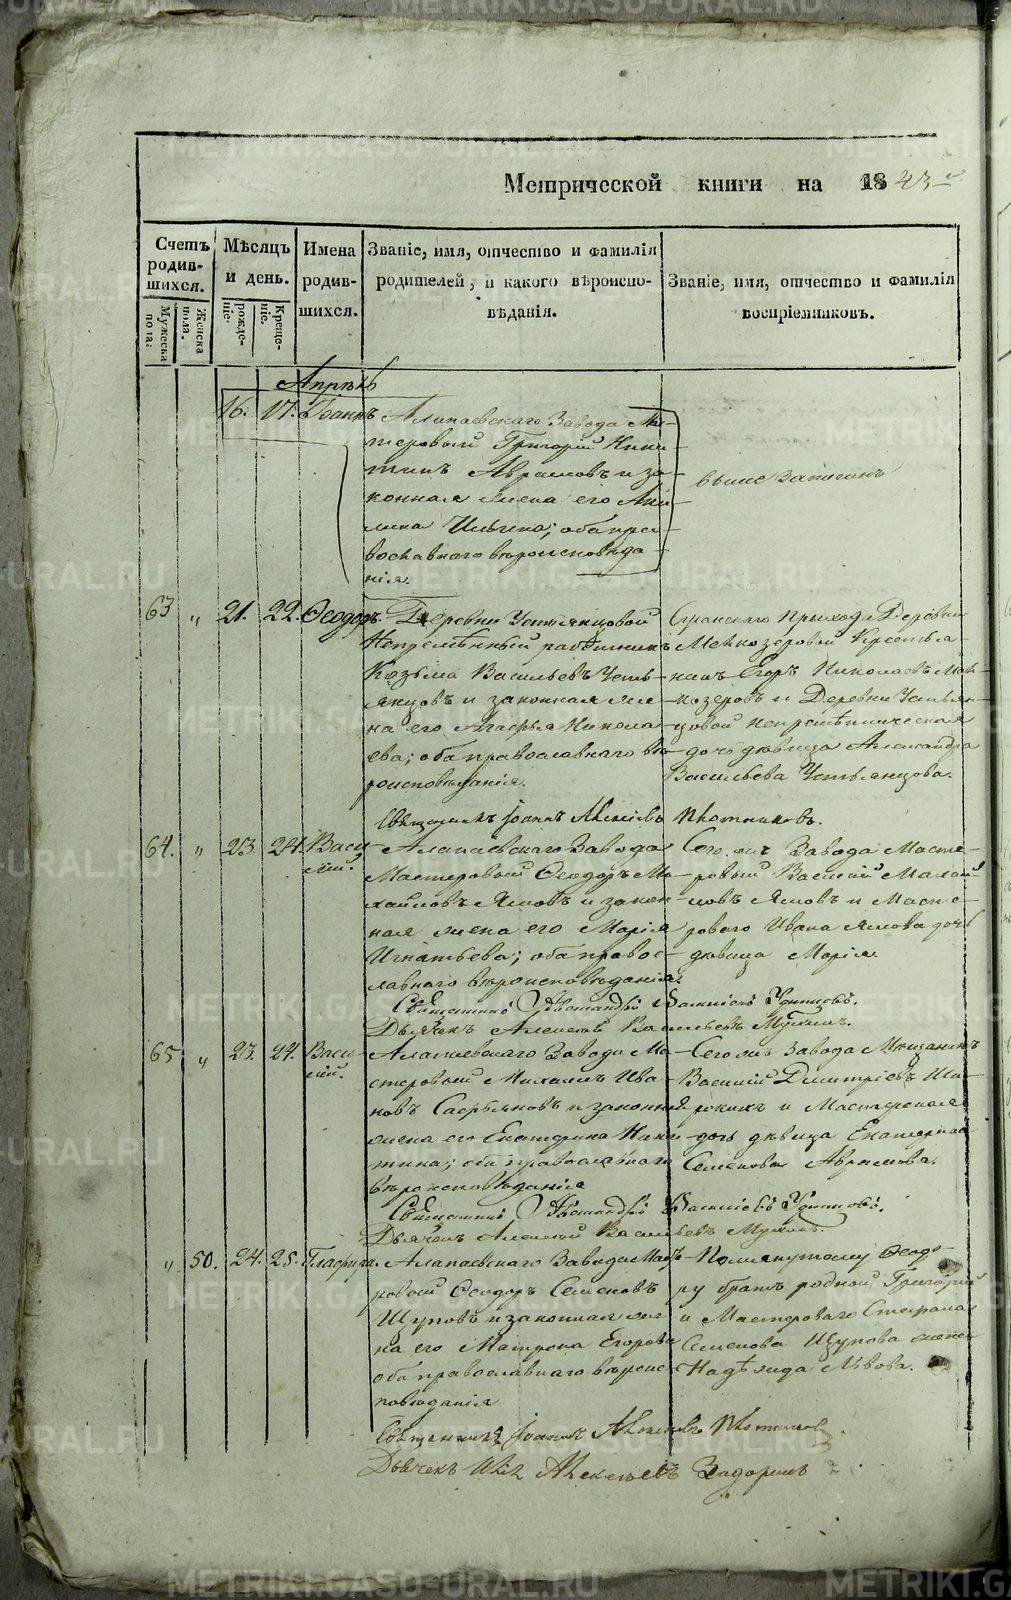 Метрической книги на 1843 г.
Счетъ родив-шихся.
Мужеска пола.
Женска пола.
Мѣсяцъ и день.
рожде-ніе.
Креще-ніе.
Имена родив-шихся.
Званіе, имя, отчество и фамилія
родителей, и какого вѣроиспо-
вѣданія.
Званіе, имя, отчество и фамилія
воспріемниковъ.
Апрѣль
16. 17. Іоаннъ Алапаевскаго Завода Мас-
теровый Григорій Ники-
тинъ Аврамовъ и за-
конная жена его Аки-
лина Ильина; оба пра-
вославнаго вѣроисповѣда-
нія.
выше записанъ
63 " 21. 22. Ѳеодоръ Деревни Устьянцовой
Непремѣнный работникъ
Козьма Васильевъ Усть-
янцовъ и законная же-
на его Агафья Никола-
ева; оба православнаго вѣ-
роисповѣданія.
Прихода Деревни
Мелкозеровой Крестья-
нинъ Егоръ Николаевъ Мел-
козеровъ и Деревни Устьян-
цовой непремѣнническая
дочь дѣвица Александра
Васильева Устьянцова.
Священникъ Іоаннъ Алексѣевъ Плотниковъ.
64. " 23 24. Васи-
лій.
Алапаевскаго Завода
Мастеровый Ѳеодоръ Ми-
хайловъ Ямовъ и закон-
ная жена его Марія
Игнатьева; оба право-
славнаго вѣроисповѣданія.
Сего же Завода Масте-
ровый Василій Михай-
ловъ Ямовъ и Масте-
роваго Ивана Ямова дочь
дѣвица Марія.
Священникъ Васильевъ Удинцовъ.
Дьячекъ Алексѣй Васильевъ
65 " 23. 24. Васи-
лій.
Алапаевскаго Завода Ма-
стеровый Михаилъ Ива-
новъ и законная
жена его Екатерина Ники-
тина; оба православнаго
вѣроисповѣданія
Сего же Завода Мѣщанинъ
Василій Димитріевъ
и Мастерская
дочь дѣвица Екатерина
Семенова Аврамова.
Священникъ Васильевъ Удинцовъ.
Дьячекъ Алексѣй Васильевъ
" 50. 24. 25. Гласира. Алапаевскаго Завода Масте-
ровый Ѳеодоръ Семеновъ
Щуповъ и законная же-
на его Матрона Егорова
оба православнаго вѣроис-
повѣданія
Помянутому Ѳеодо-
ру братъ родной Григорій
и Мастероваго Стефана
Семенова Щупова жена
Надѣжда Львова.
Священникъ Іоаннъ Алексѣевъ Плотниковъ
Дьячекъ Алексѣевъ Задоринъ
METRIKI.GASO-URAL.RU